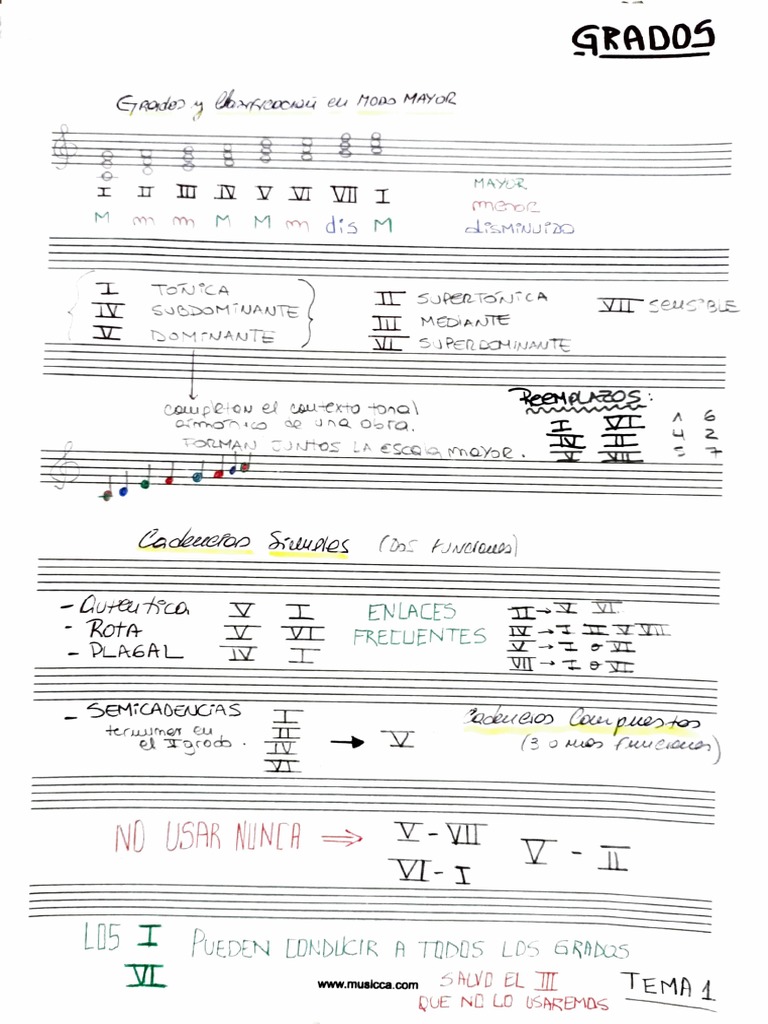 GRADOS
Grados y Clasificación en MODO MAYOR
I II III IV V VI VII I
M m m M M m dis M
MAYOR
menor
DISMINUIDO
I TÓNICA
IV SUBDOMINANTE
V DOMINANTE
II SUPERTÓNICA
III MEDIANTE
VI SUPERDOMINANTE
VII SENSIBLE
completan el contexto tonal
armónico de una obra.
FORMAN JUNTOS LA ESCALA mayor.
REEMPLAZOS:
I VI 1 6
IV II 4 2
V VII = 7
Cadencias Simples (Dos Funciones)
- Auténtica V I
- ROTA V VI
- PLAGAL IV I
ENLACES
FRECUENTES
II → V VI
IV → I II V VII
V → I o VI
VII → I o VI
- SEMICADENCIAS
terminar en
el V grado.
I
II
IV
VI
→ V
Cadencias Compuestas
(3 o más Funciones)
NO USAR NUNCA ⇒ V - VII
VI - I
V - II
LOS I
VI
PUEDEN CONDUCIR A TODOS LOS GRADOS
SALVO EL III
QUE NO LO USAREMOS
www.musicca.com
TEMA 1